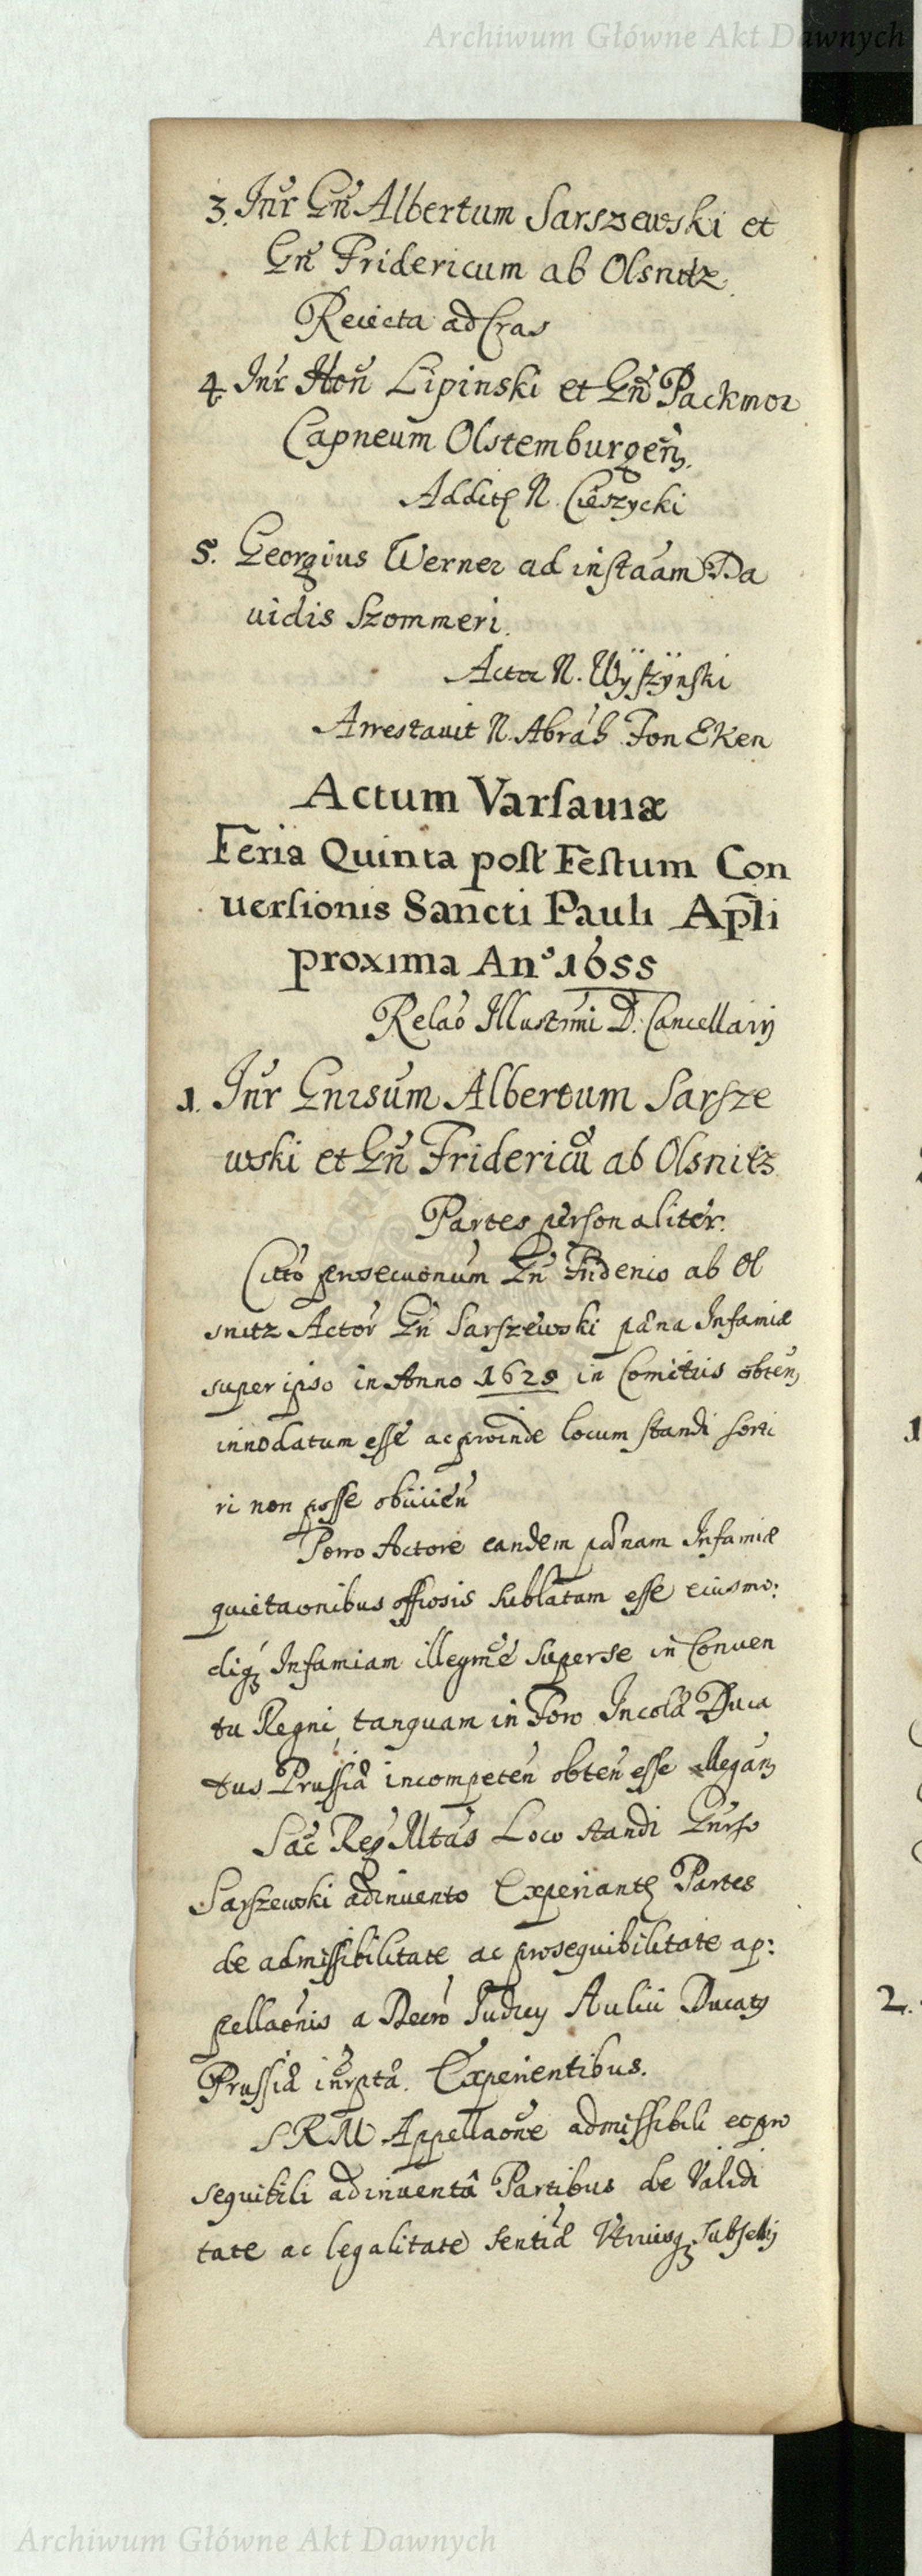 Archiwum Główne Akt Dawnych
3. Inr̃ Gn̄ Albertum Sarszewski et
Gn̄ Fridericum ab Olsnitz.
Reiecta ad Cras
4. Inr̃ Hon̄ Lipinski et Gn̄ Packmor
Capneum Olstemburgen̄.
Addit N. Cieszycki
5. Georgius Werner ad instãam Da
uidis Szommeri.
Actor N. Wÿszÿnski
Arrestauit N. Abrah̃ Fon Eken
Actum Varsauiæ
Feria Quinta post Festum Con
uersionis Sancti Pauli Ap̄li
proxima An.º 1655
Relaõ Illustr̃mi D. Cancellarij
1. Inr̃ Gnr̃sum Albertum Sarsze
wski et Gn̄ Fridericũ ab Olsnitz
Partes personaliter.
Citto Gn̄ Friderico ab Ol
snitz Actor Gn̄ Sarszewski pœna Infamiæ
super ipso in Anno 1628 in Comitiis obten̄
innodatum esse ac proinde locum standi sorti
ri non posse
Porro Actore eandem pœnam Infamiæ
quietaõnibus offiosis sublatam esse eiusmo:
diq₃ Infamiam illegm̃e super se in Conuen
tu Regni, tanquam in Foro Incolæ Duca
tus Prussiæ incompeten̄ obten̄ esse allegan̄
Sac̃ Reg̃ Mtas Loco standi Gnr̃so
Sarszewski adinuento Experiant Partes
de admissibilitate ac prosequibilitate ap:
pellaõnis a Decr̃o Judicij Aulici Ducatus
Prussiæ inr̃ptæ. Experientibus.
S R M Appellaõne admissibili et pro
sequibili adinuentâ Partibus de Validi
tate ac legalitate sentiæ Vtriusq₃ Subsellij
1
2.
Archiwum Główne Akt Dawnych